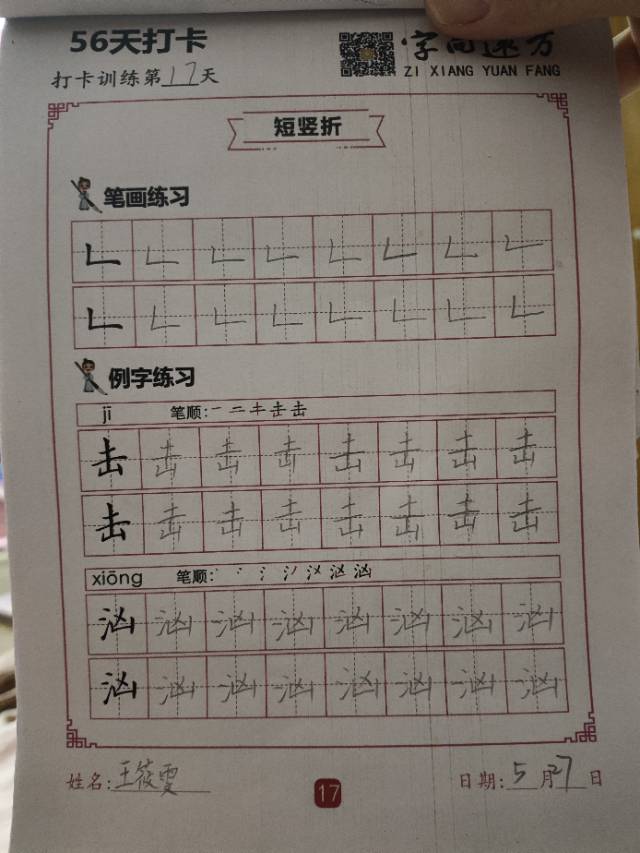 56天打卡
字向远方
打卡训练第17天
ZI XIANG YUAN FANG
短竖折
笔画练习
例字练习
jī 笔顺:
击 击 击 击 击 击 击 击
击 击 击 击 击 击 击 击
xiōng 笔顺:
汹 汹 汹 汹 汹 汹 汹 汹
汹 汹 汹 汹 汹 汹 汹 汹
姓名:王筱雯
17
日期:5月27日